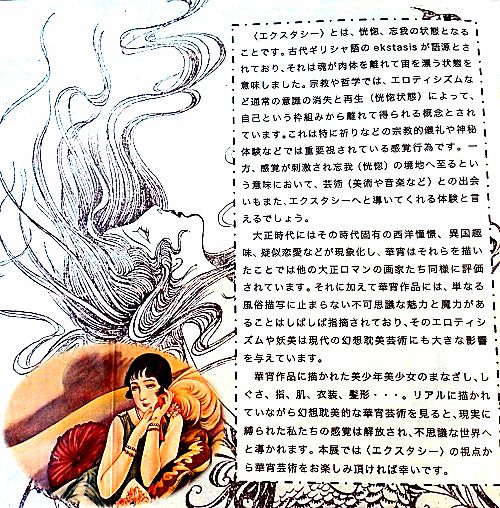 〈エクスタシー〉とは、恍惚、忘我の状態となる
ことです。古代ギリシャ語の ekstasis が語源とさ
れており、それは魂が肉体を離れて宙を漂う状態を
意味しました。宗教や哲学では、エロティシズムな
ど通常の意識の消失と再生（恍惚状態）によって、
自己という枠組みから離れて得られる概念とされ
ています。これは特に祈りなどの宗教的儀礼や神秘
体験などでは重要視されている感覚行為です。一
方、感覚が刺激され忘我（恍惚）の境地へ至るとい
う意味において、芸術（美術や音楽など）との出会
いもまた、エクスタシーへと導いてくれる体験と言
えるでしょう。
大正時代にはその時代固有の西洋憧憬、異国趣
味、疑似恋愛などが現象化し、華宵はそれらを描い
たことでは他の大正ロマンの画家たち同様に評価
されています。それに加えて華宵作品には、単なる
風俗描写に止まらない不可思議な魅力と魔力があ
ることはしばしば指摘されており、そのエロティシ
ズムや妖美は現代の幻想耽美芸術にも大きな影響
を与えています。
華宵作品に描かれた美少年美少女のまなざし、し
ぐさ、指、肌、衣装、髪形・・・。リアルに描かれ
ていながら幻想耽美的な華宵芸術を見ると、現実に
縛られた私たちの感覚は解放され、不思議な世界へ
と導かれます。本展では〈エクスタシー〉の視点か
ら華宵芸術をお楽しみ頂ければ幸いです。